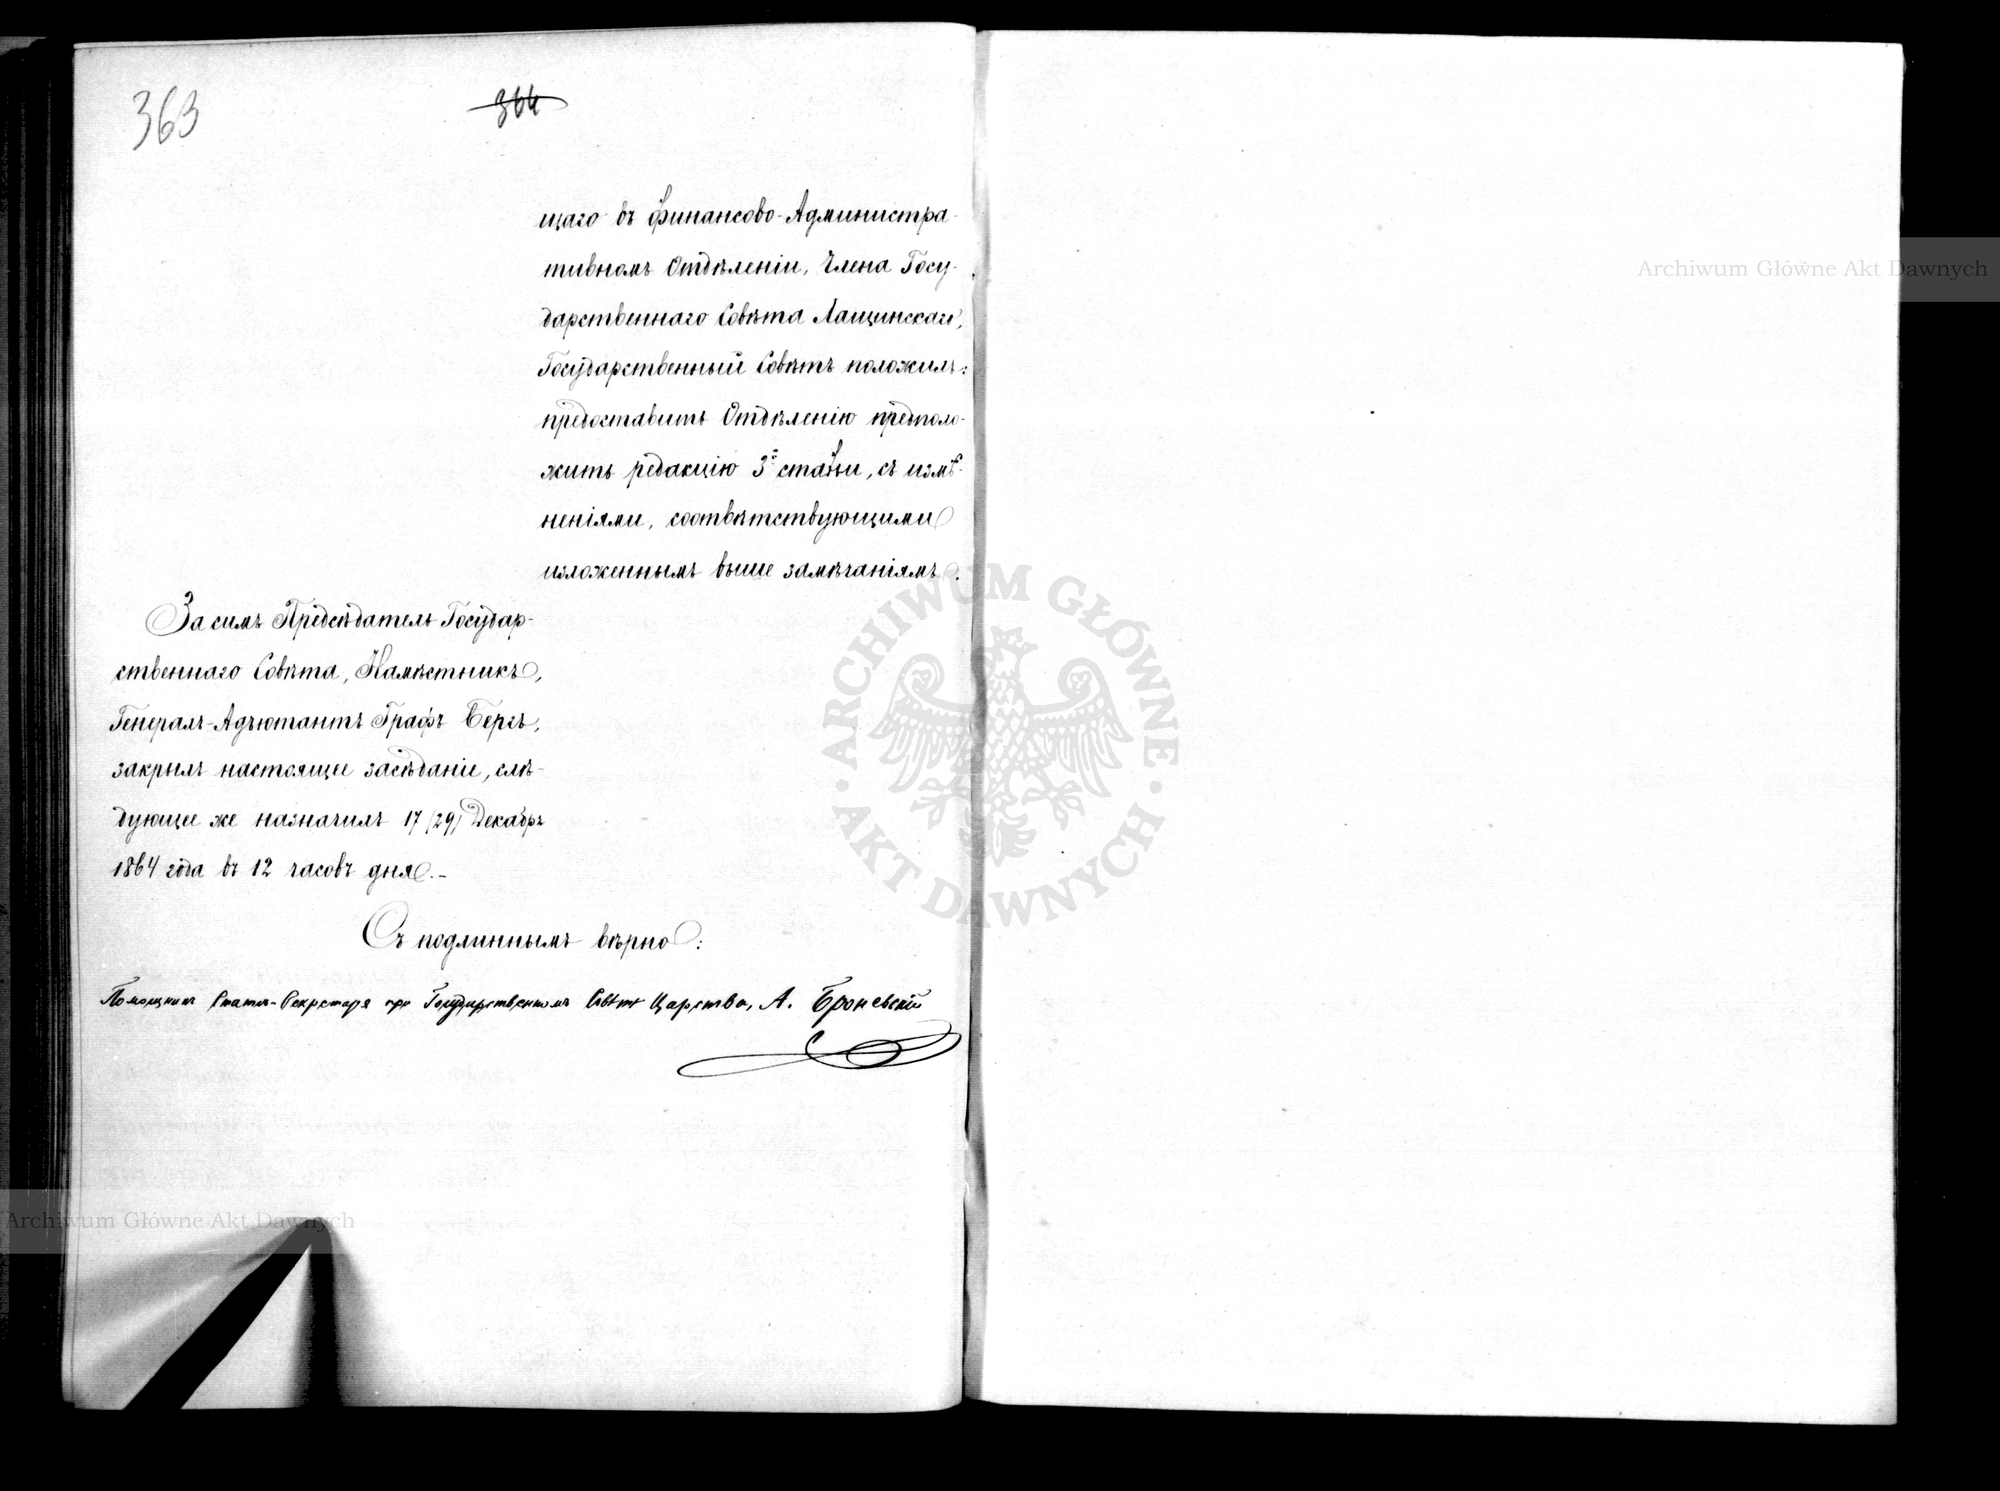 363
364
щаго въ Финансово-Администра-
тивномъ Отдѣленіи, Члена Госу-
дарственнаго Совѣта Лащинскаго,
Государственный Совѣтъ положилъ:
предоставить Отдѣленію предполо-
жить редакцію 3й статьи, съ измѣ-
неніями, соотвѣтствующими
изложеннымъ выше замѣчаніямъ.
За симъ Предсѣдатель Государ-
ственнаго Совѣта, Намѣстникъ,
Генералъ-Адъютантъ Графъ Бергъ,
закрылъ настоящее засѣданіе, слѣ-
дующее же назначилъ 17 (29) Декабр
1864 года въ 12 часовъ дня.-
Съ подлиннымъ вѣрно:
Помощникъ Статсъ-Секретаря при Государственномъ Совѣтѣ Царства, А. Броневскій
ARCHIWUM GŁÓWNE AKT DAWNYCH
Archiwum Główne Akt Dawnych
Archiwum Główne Akt Dawnych